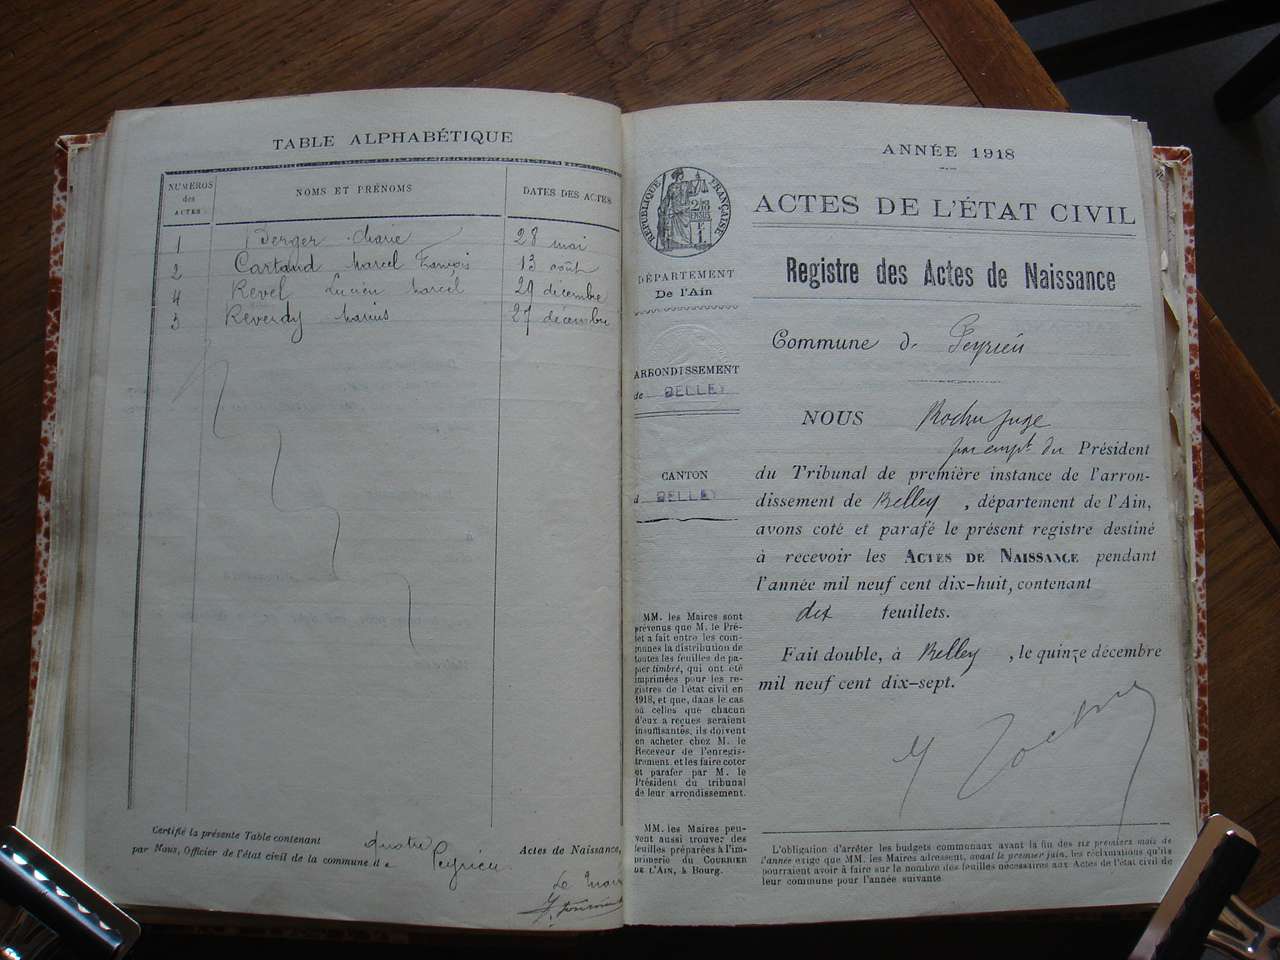 TABLE ALPHABÉTIQUE
NUMÉROS des ACTES
NOMS ET PRÉNOMS
DATES DES ACTES
1 Berger Marie 28 mai
2 Cartand Marcel François 13 août
4 Revel Lucien Marcel 29 décembre
3 Reverdy Marius 27 décembre
Certifié la présente Table contenant quatre Actes de Naissance,
par Nous, Officier de l'état civil de la commune de Peyrieu
Le Maire
ANNÉE 1918
RÉPUBLIQUE FRANÇAISE
ACTES DE L'ÉTAT CIVIL
Registre des Actes de Naissance
DÉPARTEMENT
De l'Ain
ARRONDISSEMENT
de BELLEY
CANTON
d BELLEY
Commune de Peyrieu
NOUS Rochu juge
par empt. du Président
du Tribunal de première instance de l'arron-
dissement de Belley, département de l'Ain,
avons coté et parafé le présent registre destiné
à recevoir les ACTES DE NAISSANCE pendant
l'année mil neuf cent dix-huit, contenant
dix feuillets.
Fait double, à Belley, le quinze décembre
mil neuf cent dix-sept.
MM. les Maires sont
prévenus que M. le Pré-
fet a fait entre les com-
munes la distribution de
toutes les feuilles de pa-
pier timbré, qui ont été
imprimées pour les re-
gistres de l'état civil en
1918, et que, dans le cas
où celles que chacun
d'eux a reçues seraient
insuffisantes, ils doivent
en acheter chez M. le
Receveur de l'enregis-
trement, et les faire coter
et parafer par M. le
Président du tribunal
de leur arrondissement.
MM. les Maires peu-
vent aussi trouver des
feuilles préparées à l'im-
primerie du COURRIER
DE L'AIN, à Bourg.
L'obligation d'arrêter les budgets communaux avant la fin des six premiers mois de
l'année exige que MM. les Maires adressent, avant le premier juin, les réclamations qu'ils
pourraient avoir à faire sur le nombre des feuilles nécessaires aux Actes de l'état civil de
leur commune pour l'année suivante.